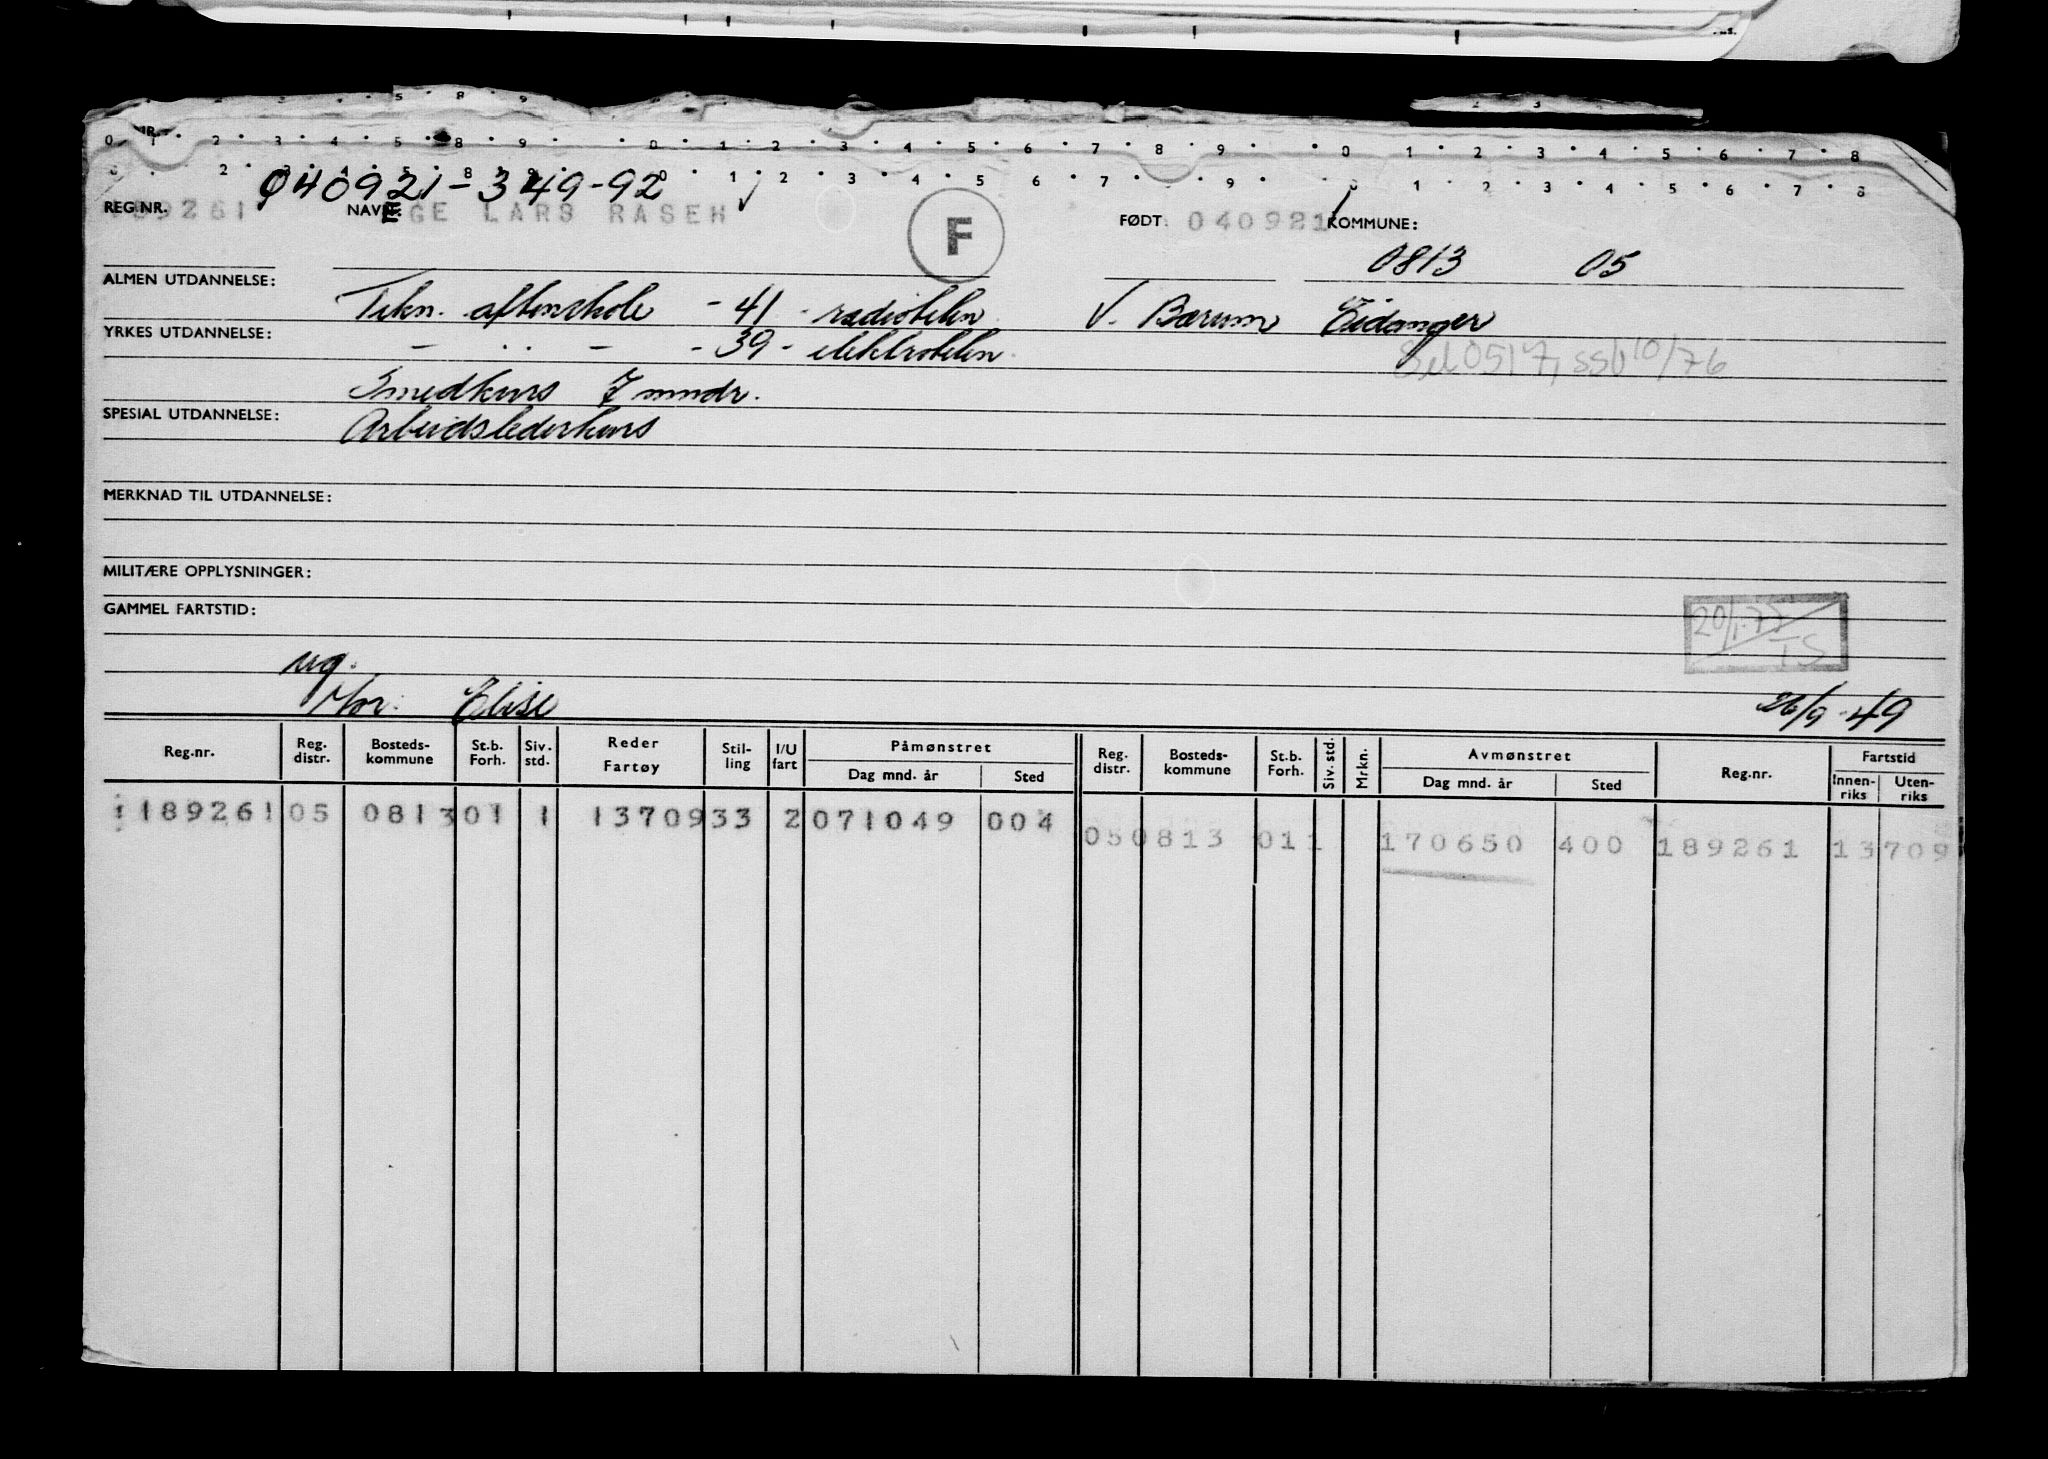 040921-349-92
REG.NR. 89261 NAVN: GE LARS RASEH F FØDT: 040921 KOMMUNE:
0813 05
ALMEN UTDANNELSE:
Tekn. aftenskole - 41 - radiotekn. V. Bærum Eidanger
YRKES UTDANNELSE: - ·· - - 39 - elektrotekn.
Sel 0517, SSB 10/76
Smedkurs 7 mndr.
SPESIAL UTDANNELSE: Arbeidslederkurs
MERKNAD TIL UTDANNELSE:
MILITÆRE OPPLYSNINGER:
GAMMEL FARTSTID:
20/1-77
TS
ug.
Mor: Elise 26/9-49
Reg.nr. Reg. distr. Bosteds- kommune St.b. Forh. Siv. std. Reder Fartøy Stil- ling I/U fart Påmønstret Dag mnd. år Sted Reg. distr. Bosteds- kommune St.b. Forh. Siv. std. Mrkn. Avmønstret Dag mnd. år Sted Reg.nr. Fartstid Innen- riks Uten- riks
189261 05 0813 01 1 13709 33 2 071049 004
05 0813 01 1 170650 400 189261 13709